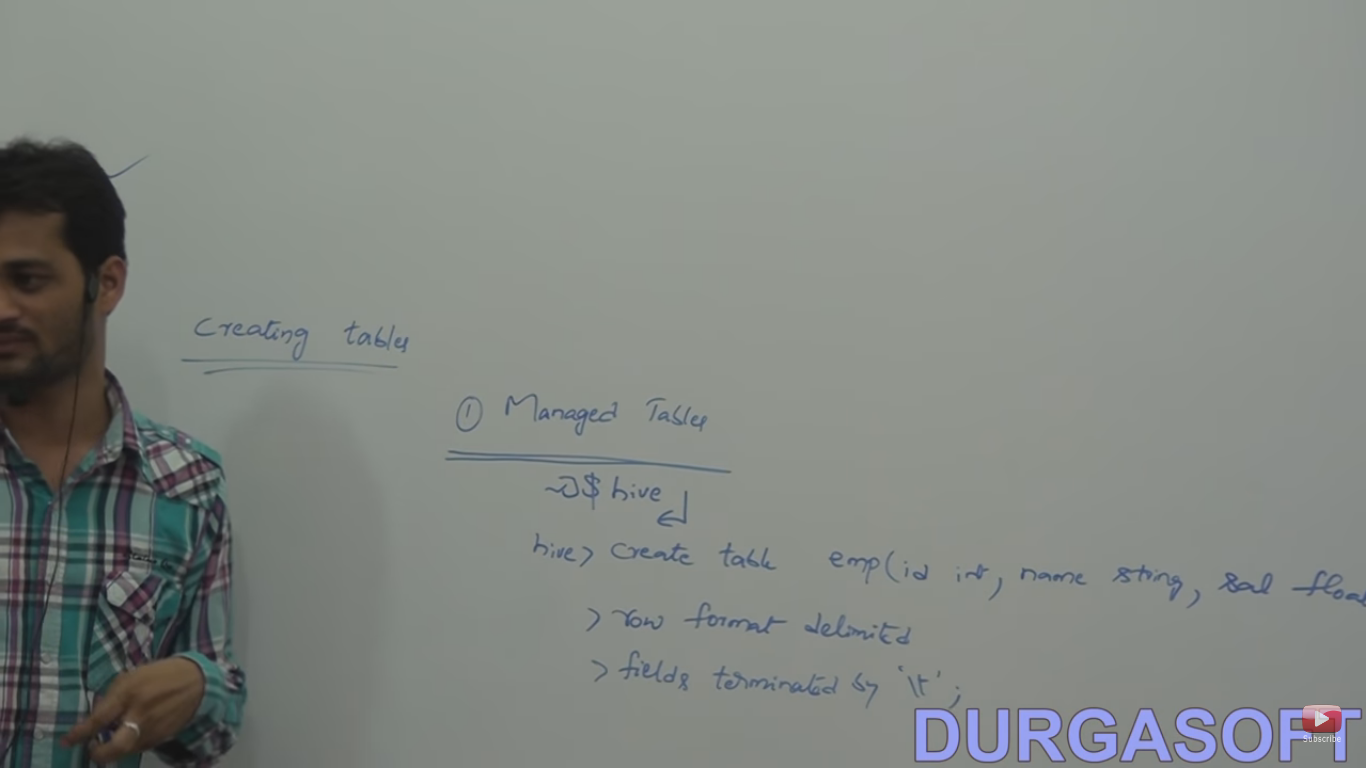 Creating tables
① Managed Tables
~]$ hive
hive> Create table emp(id int, name string, sal float
> row format delimited
> fields terminated by '\t';
DURGASOFT
Subscribe